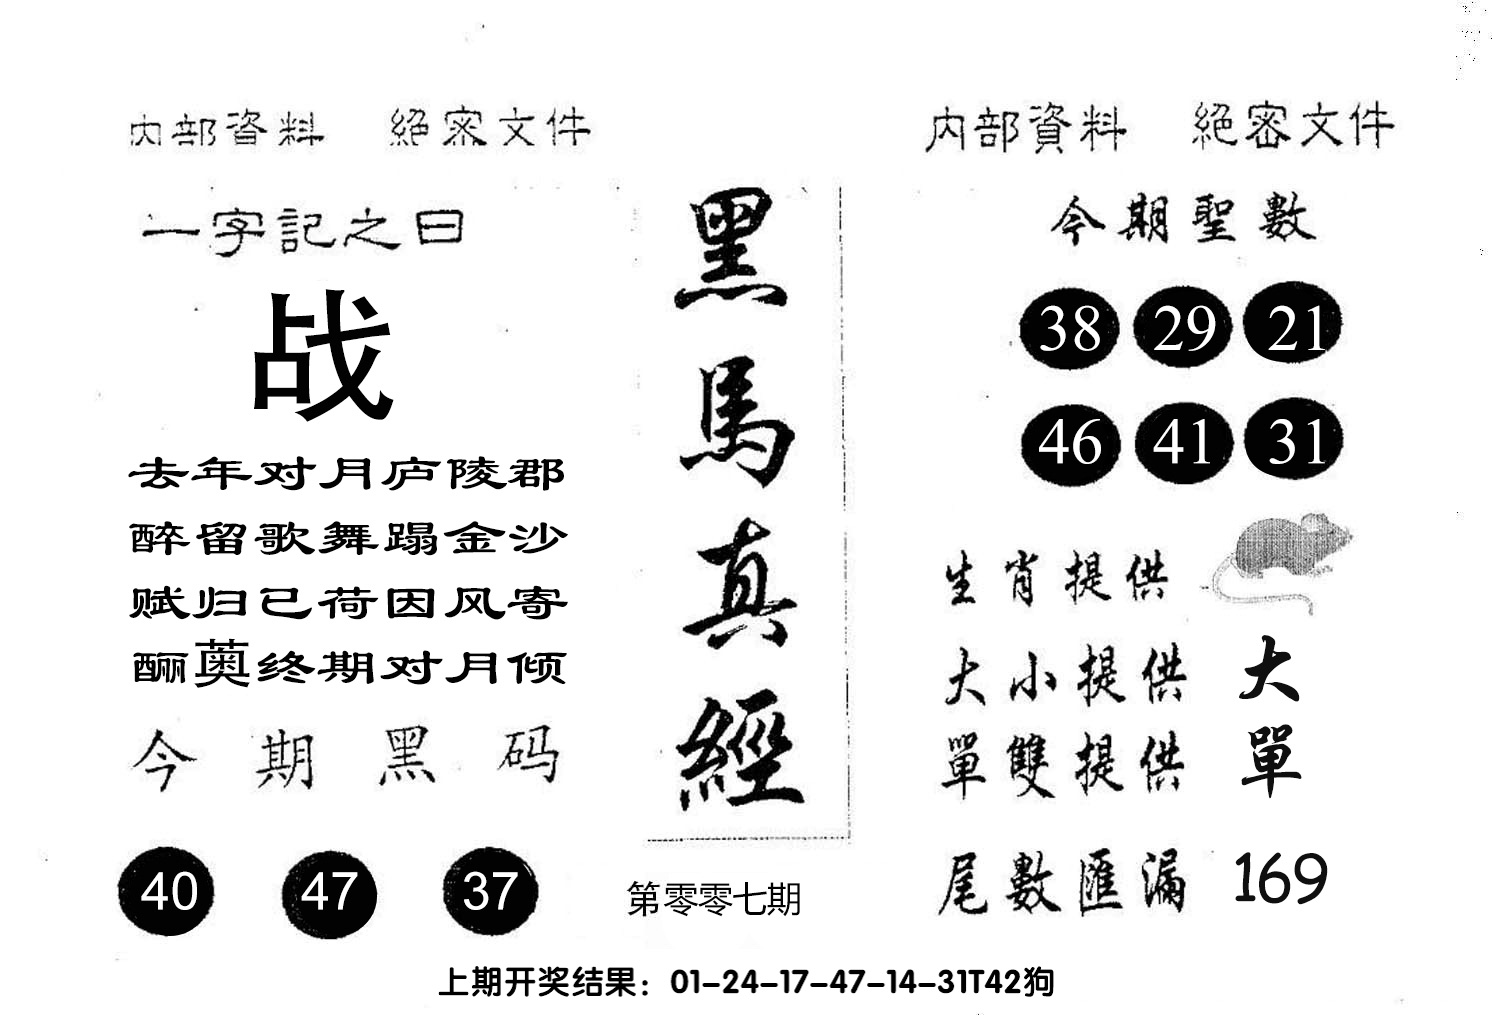 内部資料 絕密文件
一字記之曰
战
去年对月庐陵郡
醉留歌舞蹋金沙
赋归已荷因风寄
酾薁终期对月倾
今期黑码
40 47 37
黑馬真經
第零零七期
内部資料 絕密文件
今期聖數
38 29 21
46 41 31
生肖提供
大小提供 大
單雙提供 單
尾數匯漏 169
上期开奖结果：01-24-17-47-14-31T42狗